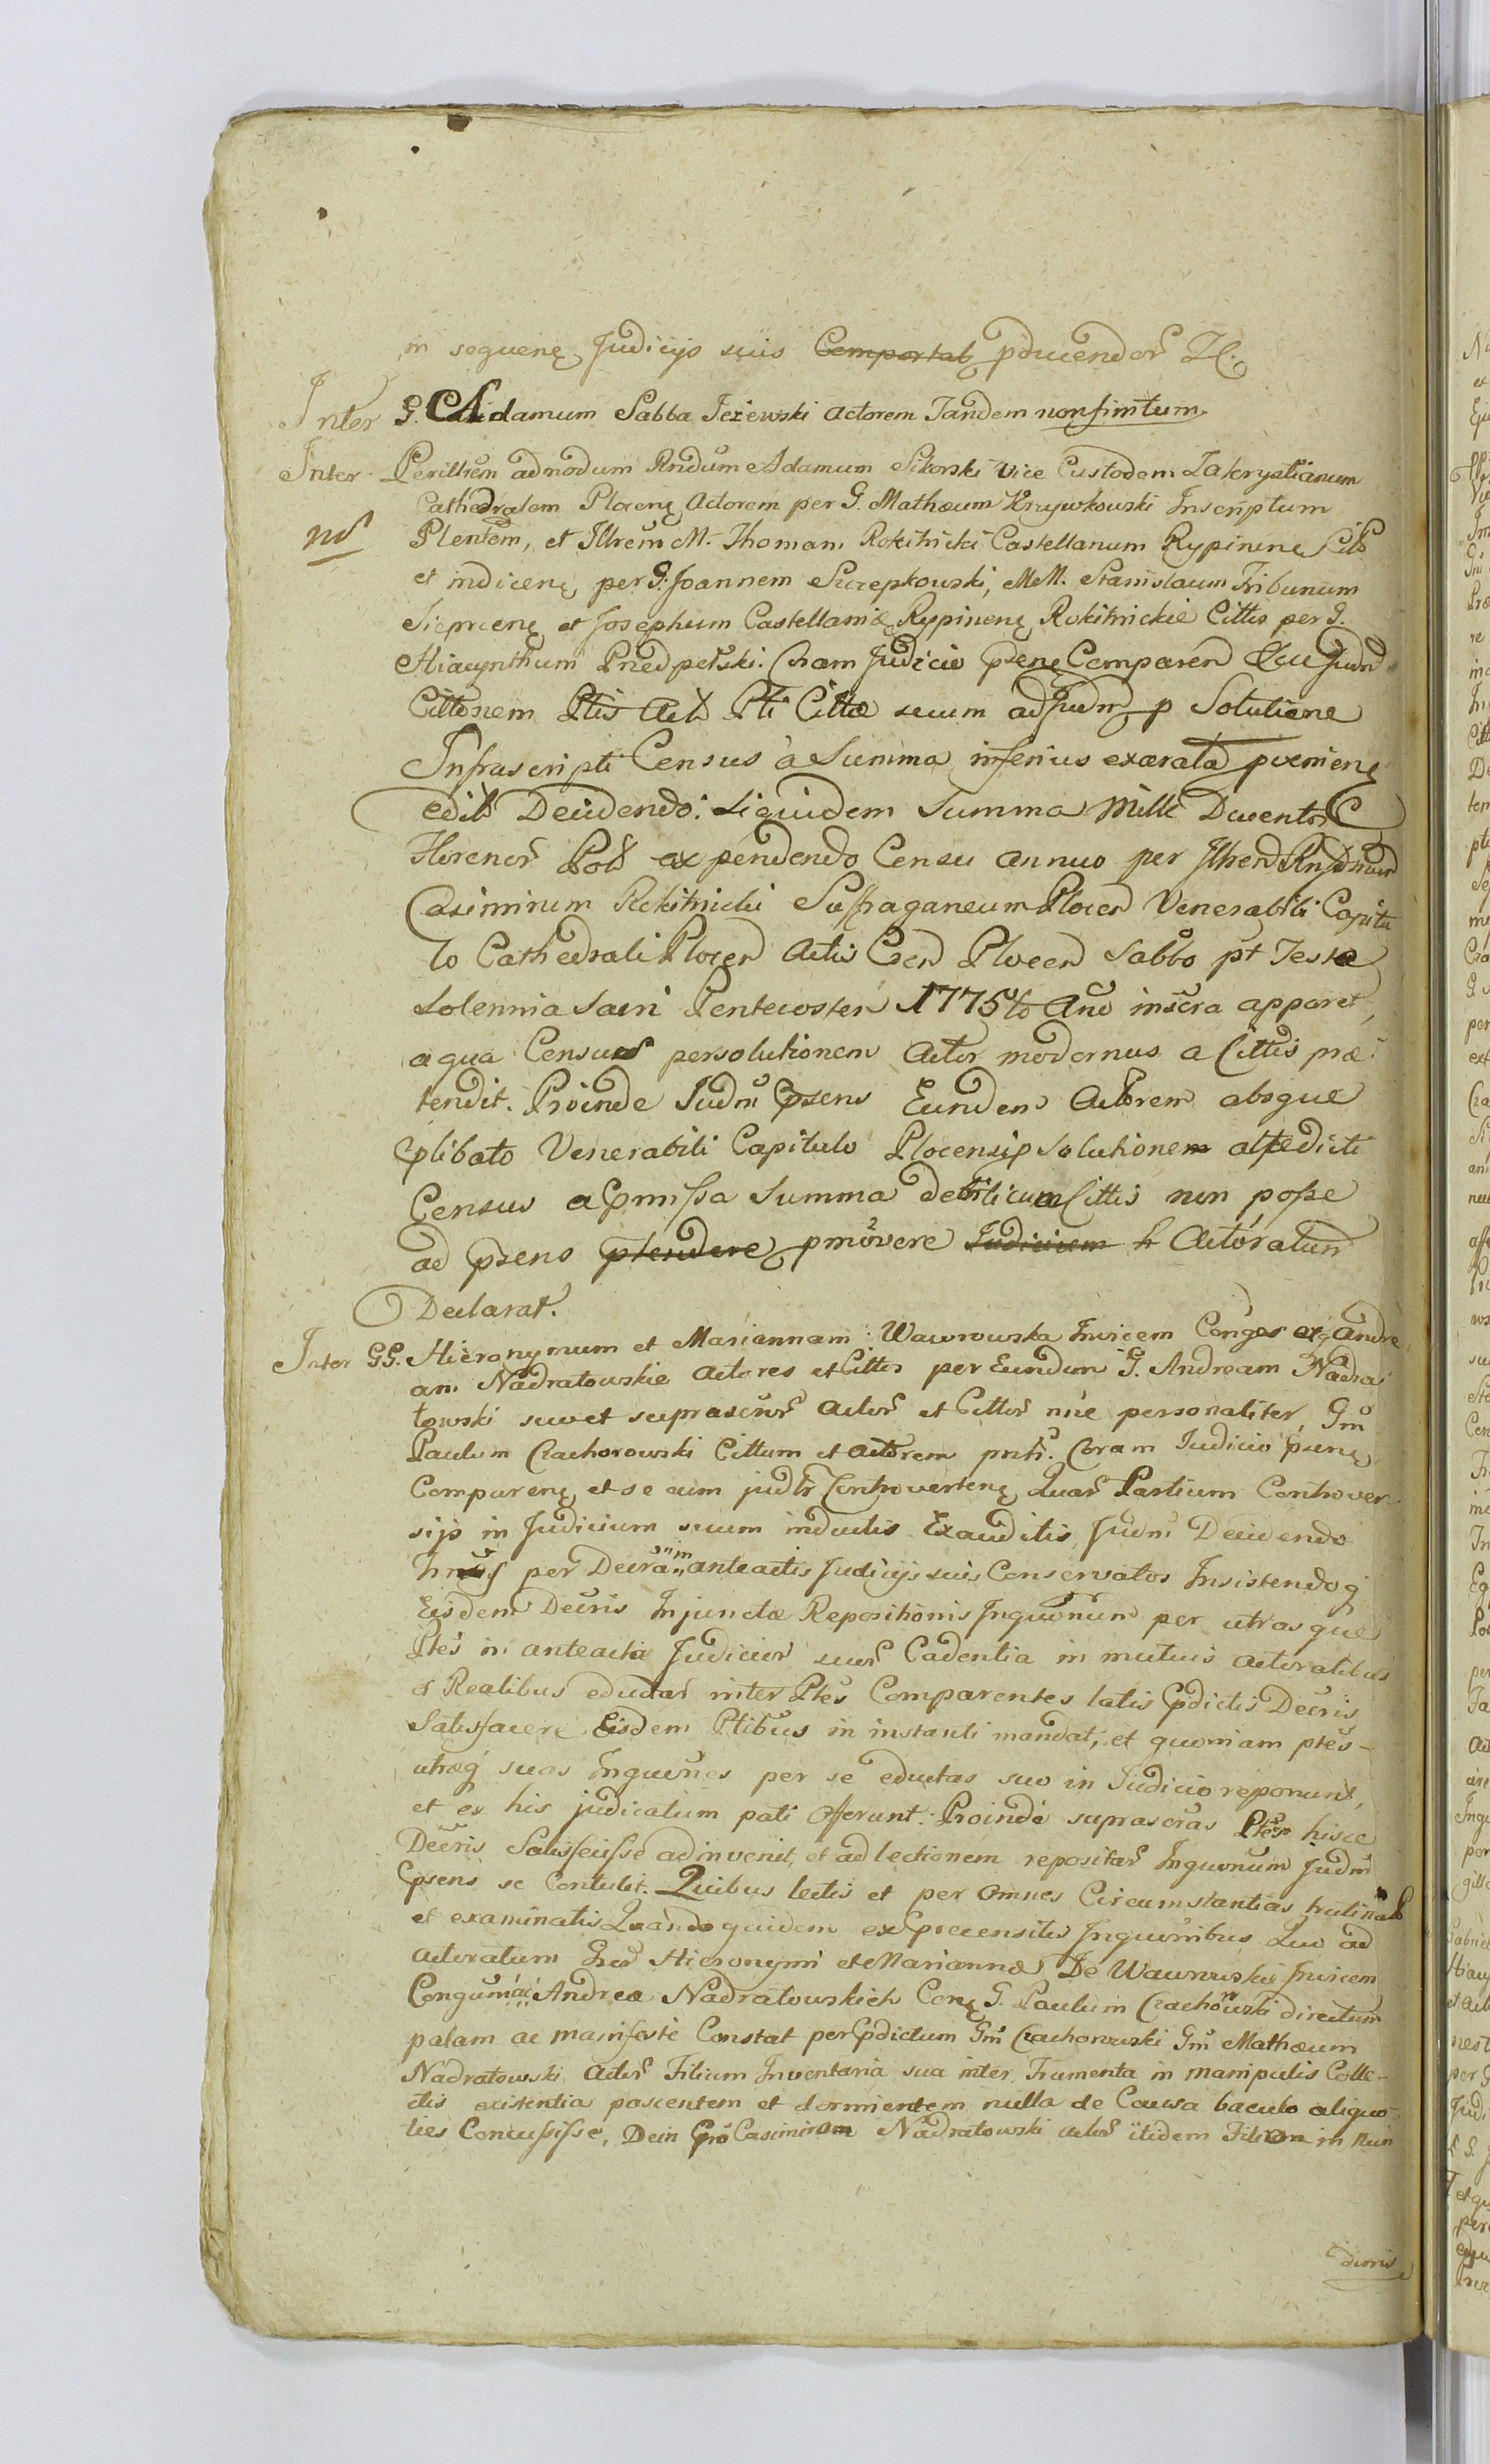 in sequenę Judicijs suis Comportat pducendor
Inter G. Adamum Sabba Jeżewski actorem Tandem nonfinitum
Inter Perillrem admodum Rndum Adamum Sikorski Vice Custodem Zakrystianum
Cathedralem Plocenę Actorem per G. Mathæum Krzywkowski Inscriptum
Plentem, et Illrem M. Thomam Rokitnicki Castellanum Rypinenę
et indicenę per G. Joannem Szczepkowski, MM. Stanislaum Tribunum
Sieprcenę et Josephum Castellaniæ Rypinenę Rokitnickie Cittos per G.
Hiacynthum Coram Judicio psenę Comparen
Cittonem Ptis Act Pti Cittæ suum ad Judm p Solutione
Infrascripti Census à Summa inferius exarata pvenienę
Decidendo. Siquidem Summa Mille Ducentor
Florenor Pol ex pendendo Censu annuo per Illren
Casimirum Rokitnicki Suffraganeum Plocen Venerabili Capitu
lo Cathedrali Plocen Actis Plocen Sabbo pt Festa
Solennia Sacri Pentecosten 1775to Ano inscra apparet,
a qua Census persolutionem Actor modernus a Cittis præ
tendit. Proinde Judm Psens Eundem Actorem absque
plibato Venerabili Capitulo Plocensi p Solutionem
Census a pmissa Summa debiti cum Cittis non posse
ad psens ptendere pmovere Judicium h Actoratum
Declarat.
Inter GG. Hieronymum et Mariannam Wawrowska Invicem Conges atq Andre
am Nadratowskie Actores et Cittos per Eundem G. Andream Nadra
towski suo et suprascror Actor et Cittor nie personaliter, Gm
Paulum Czachorowski Cittum et Actorem Coram Judicio psenę
Comparenę et se cum judlr Controvertenę Quar Partium Controver
sijs in Judicium suum inductis Exauditis, Judm Decidendo
per Decra in anteactis Judicijs suis Conservatos Insistendoq
Eisdem Decris Injunctæ Repositionis Inquonum per utrasque
Ptes in anteacta Judicior suor Cadentia in mutuis actoratibus
et Realibus eductar inter Ptes Comparentes latis pdictis Decris
Satisfacere Eisdem Ptibus in instanti mandat; et quoniam ptes
utræq suas Inquones per se eductas suo in Judicio reponunt,
et ex his judicatum pati offerunt. Proinde suprascras Ptes hisce
Decris Satisfecisse adinvenit, et ad lectionem repositar Inquonum Judm
psens se Contulit. Quibus lectis et per Omnes Circumstantias trutinatis
et examinatis Quando quidem ex precensitis Inquonibus Quo ad
actoratum Gror Hieronymi et Mariannæ De Wawrowskie Invicem
Congum ac Andreæ Nadratowskich Conę G. Paulum Czachorowski directum
palam ac manifeste Constat per pdictum Gm Czachorowski Gm Mathæum
Nadratowski Actor Filium Inventaria sua inter Frumenta in manipulis Colle-
ctis existentia pascentem et dormientem nulla de Causa baculo aliquo
ties Concussisse, Dein Gro Casimirum Nadratowski actor itidem Filium in Nun
dinis